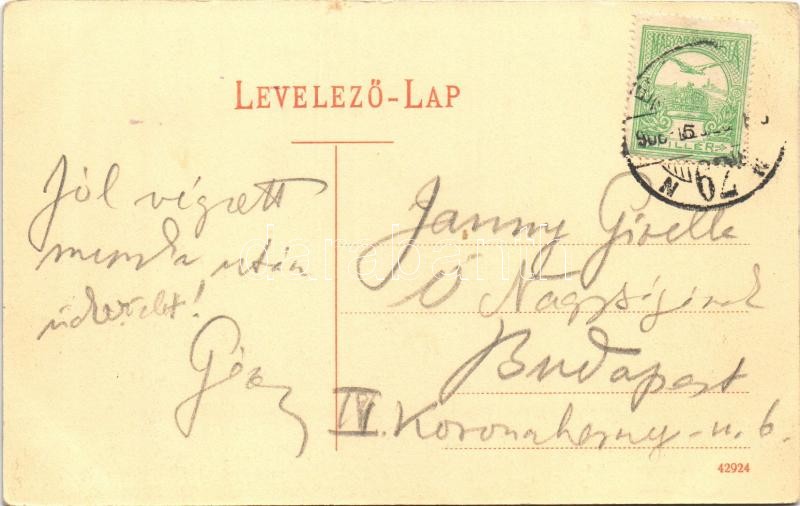 LEVELEZŐ-LAP
MAGYAR POSTA
FILLÉR
906
62
N N
Jól végzett
munka után
üdvözlet!
Géza
Janny Gizella
Ő Nagyságának
Budapest
IV. Koronaherczeg-u. 6.
42924
darabanth